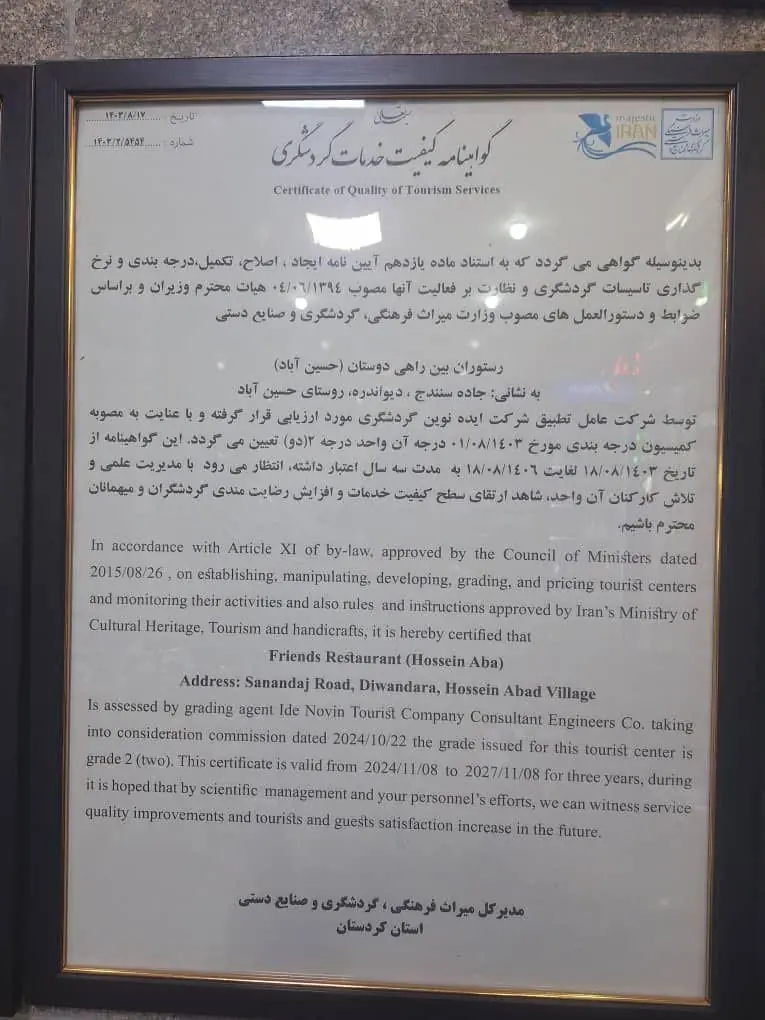 بسمه تعالی
تاریخ : ......۱۴۰۳/۸/۱۷
شماره : ......۱۴۰۳/۲/۵۴۵۴
گواهینامه کیفیت خدمات گردشگری
Certificate of Quality of Tourism Services
majestic
IRAN
بدینوسیله گواهی می گردد که به استناد ماده یازدهم آیین نامه ایجاد ، اصلاح، تکمیل،درجه بندی و نرخ
گذاری تاسیسات گردشگری و نظارت بر فعالیت آنها مصوب ۰٤/۰٦/۱۳۹٤ هیات محترم وزیران و براساس
ضوابط و دستورالعمل های مصوب وزارت میراث فرهنگی، گردشگری و صنایع دستی
رستوران بین راهی دوستان (حسین آباد)
به نشانی: جاده سنندج ، دیواندره، روستای حسین آباد
توسط شرکت عامل تطبیق شرکت ایده نوین گردشگری مورد ارزیابی قرار گرفته و با عنایت به مصوبه
کمیسیون درجه بندی مورخ ۰۱/۰۸/۱٤۰۳ درجه آن واحد درجه ۲(دو) تعیین می گردد. این گواهینامه از
تاریخ ۱۸/۰۸/۱٤۰۳ لغایت ۱۸/۰۸/۱٤۰٦ به مدت سه سال اعتبار داشته، انتظار می رود با مدیریت علمی و
تلاش کارکنان آن واحد، شاهد ارتقای سطح کیفیت خدمات و افزایش رضایت مندی گردشگران و میهمانان
محترم باشیم.
In accordance with Article XI of by-law, approved by the Council of Ministers dated
2015/08/26 , on establishing, manipulating, developing, grading, and pricing tourist centers
and monitoring their activities and also rules and instructions approved by Iran's Ministry of
Cultural Heritage, Tourism and handicrafts, it is hereby certified that
Friends Restaurant (Hossein Aba)
Address: Sanandaj Road, Diwandara, Hossein Abad Village
Is assessed by grading agent Ide Novin Tourist Company Consultant Engineers Co. taking
into consideration commission dated 2024/10/22 the grade issued for this tourist center is
grade 2 (two). This certificate is valid from 2024/11/08 to 2027/11/08 for three years, during
it is hoped that by scientific management and your personnel's efforts, we can witness service
quality improvements and tourists and guests satisfaction increase in the future.
مدیرکل میراث فرهنگی ، گردشگری و صنایع دستی
استان کردستان